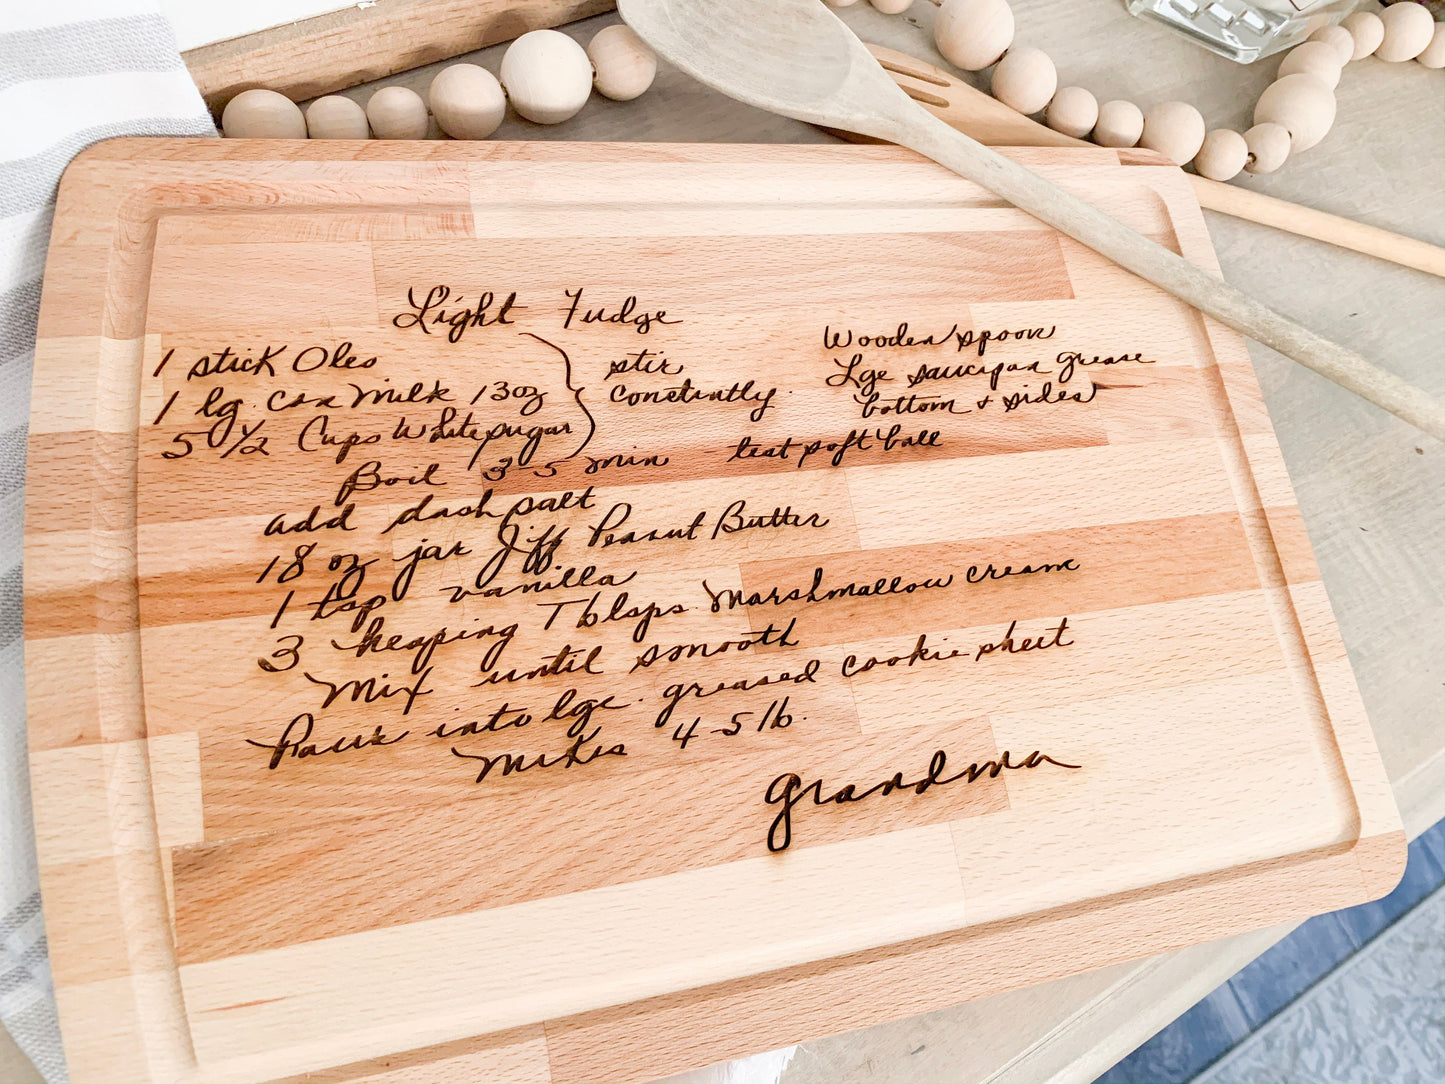 Light Fudge
1 stick Oleo
1 lg. can milk 13 oz
5 1/2 Cups White sugar
stir
constantly.
Wooden spoon
Lge saucepan grease
bottom + sides
Boil 3-5 min test soft ball
add dash salt
18 oz jar Jiff Peanut Butter
1 tsp vanilla
3 heaping Tblsps. Marshmallow creame
Mix until smooth
Pour into lge. greased cookie sheet
Makes 4-5 lb.
Grandma